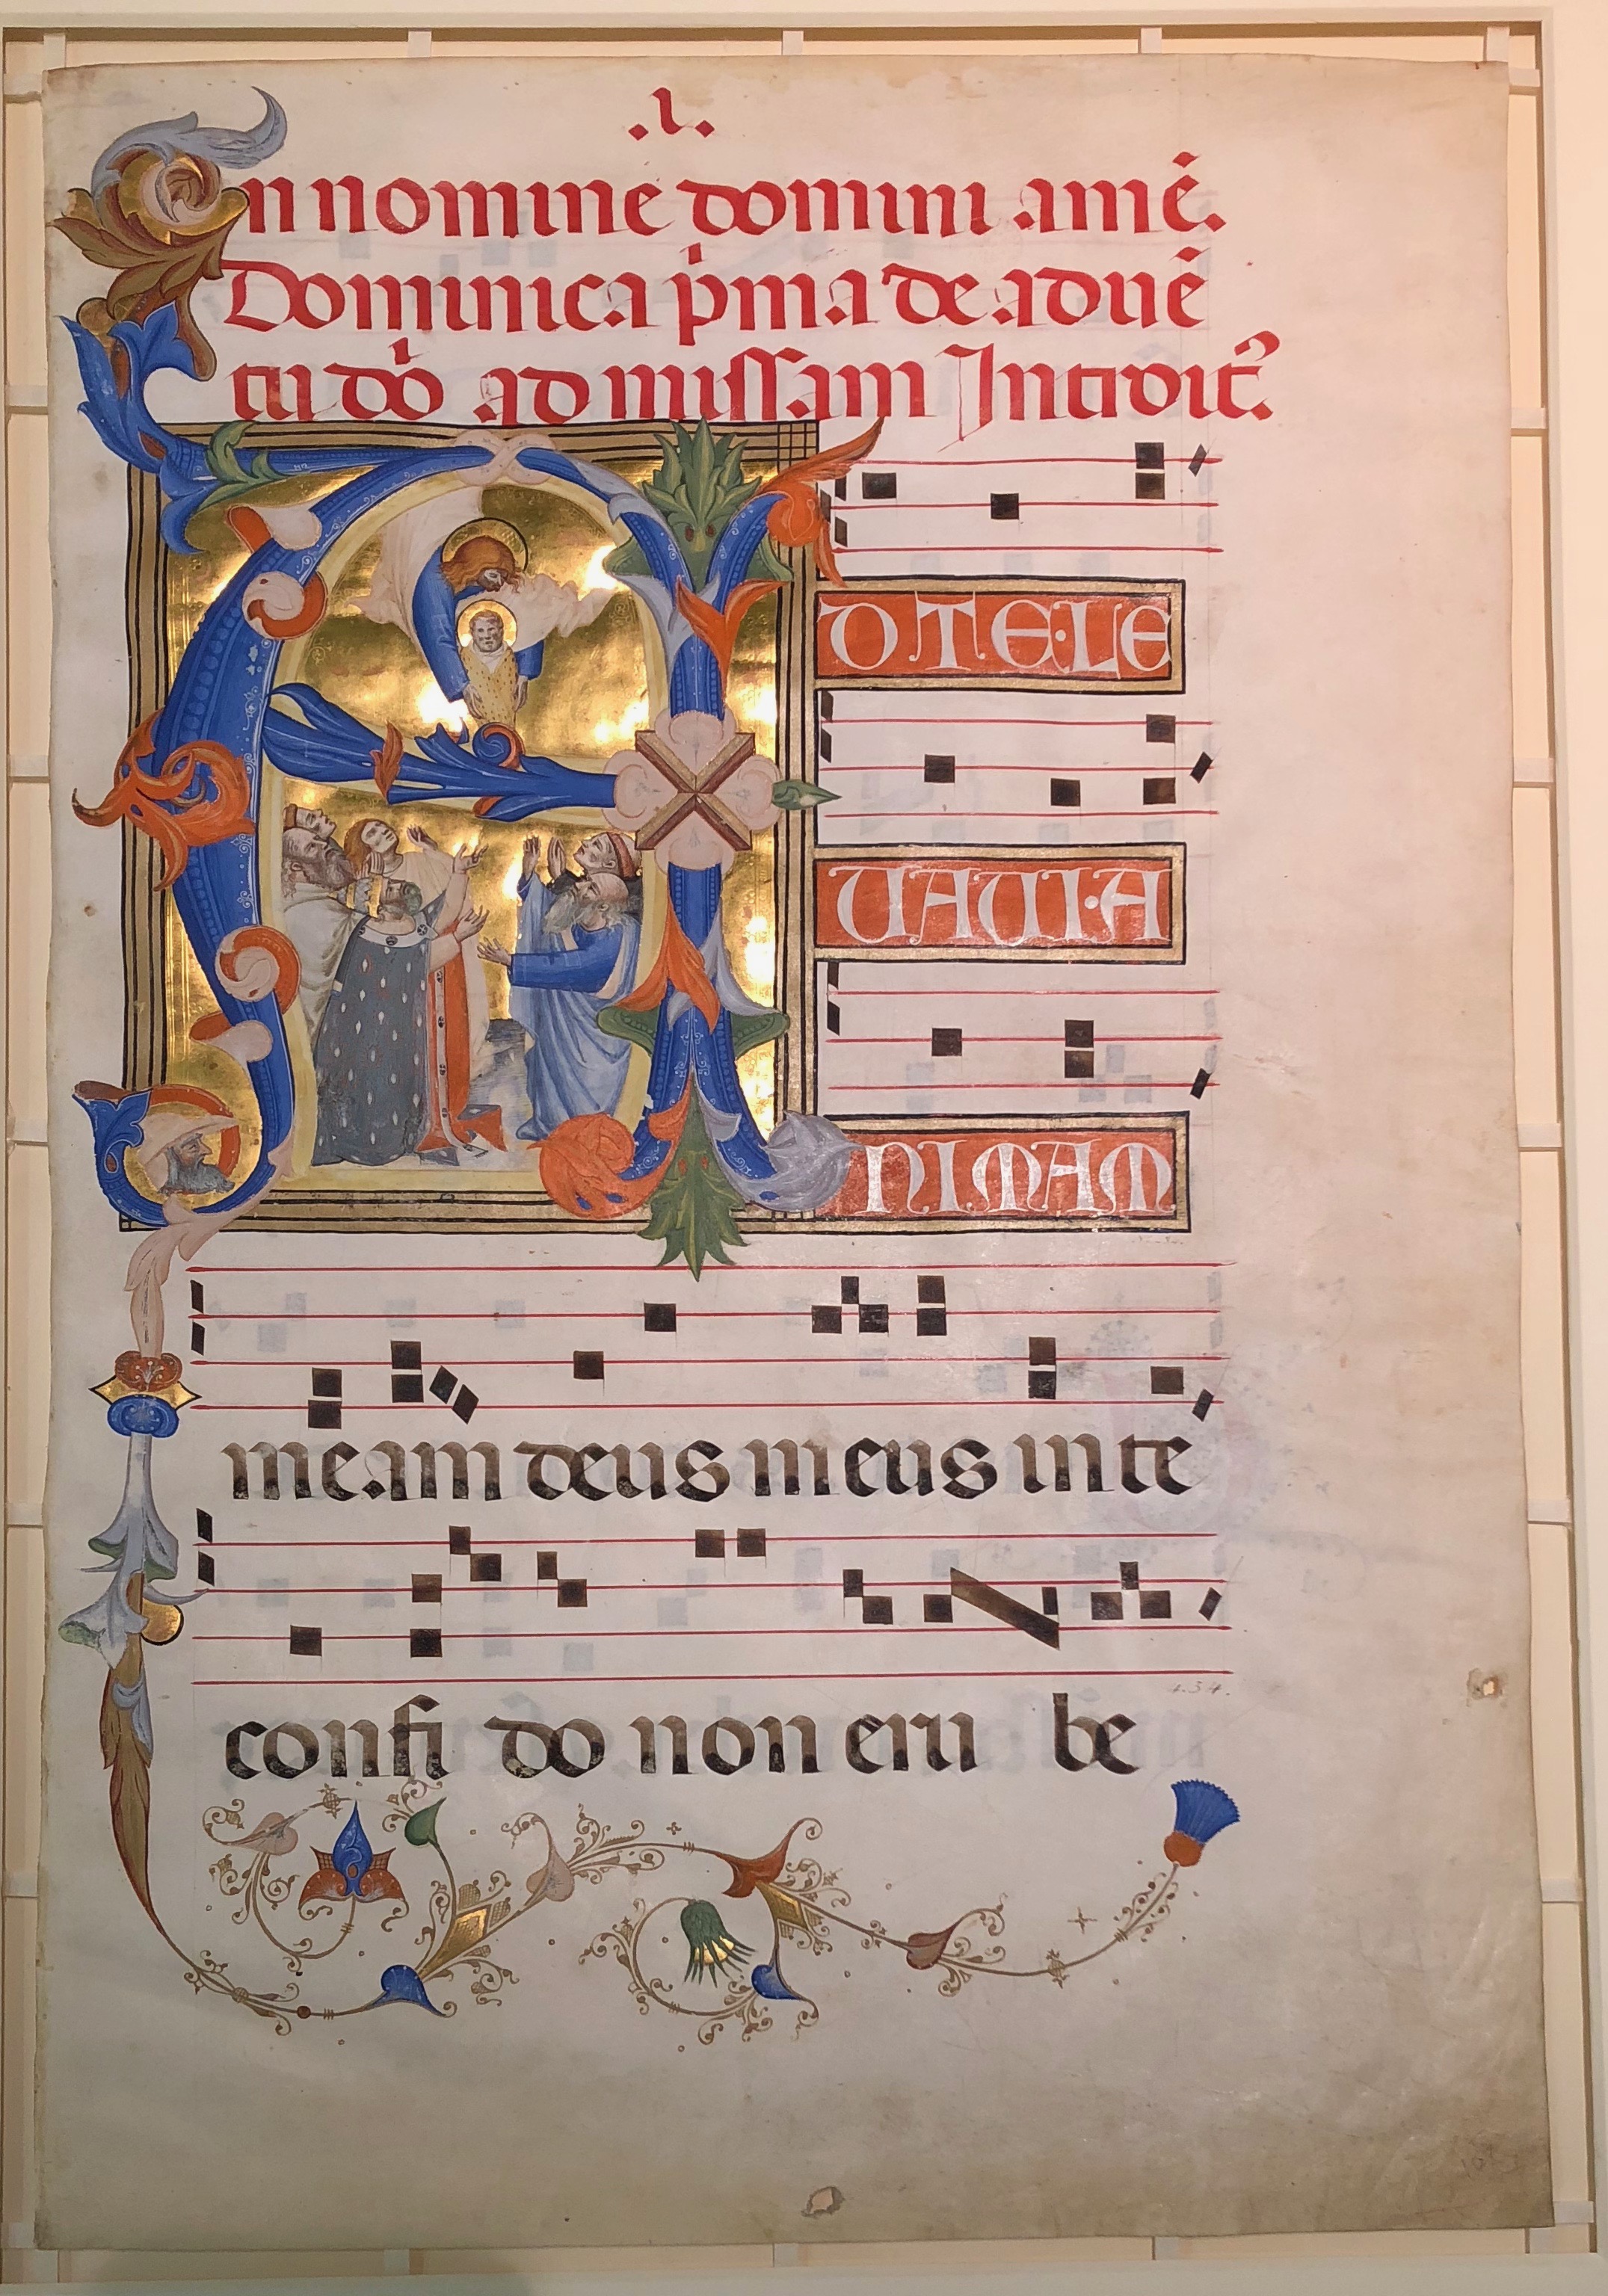 .I.
In nomine domini amē.
Dominica p̍ma de aduē
tu dn̄i ad missam Introit᷑.
AD TE·LE
UAUI·A
NI.MAM
meam deus meus in te
confi do non eru be
.134.